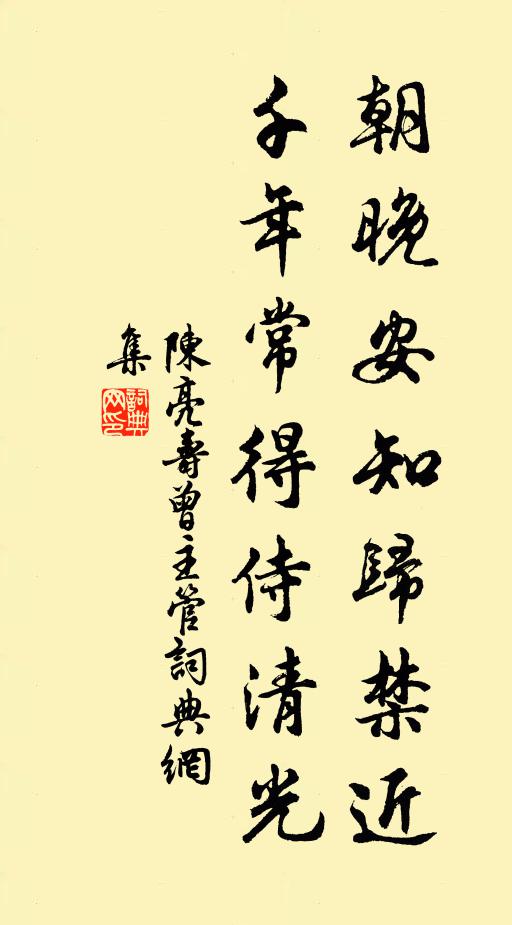 朝晚安知歸禁近
千年常得侍清光
陳亮壽曾主管詞典網
集
詞典網印